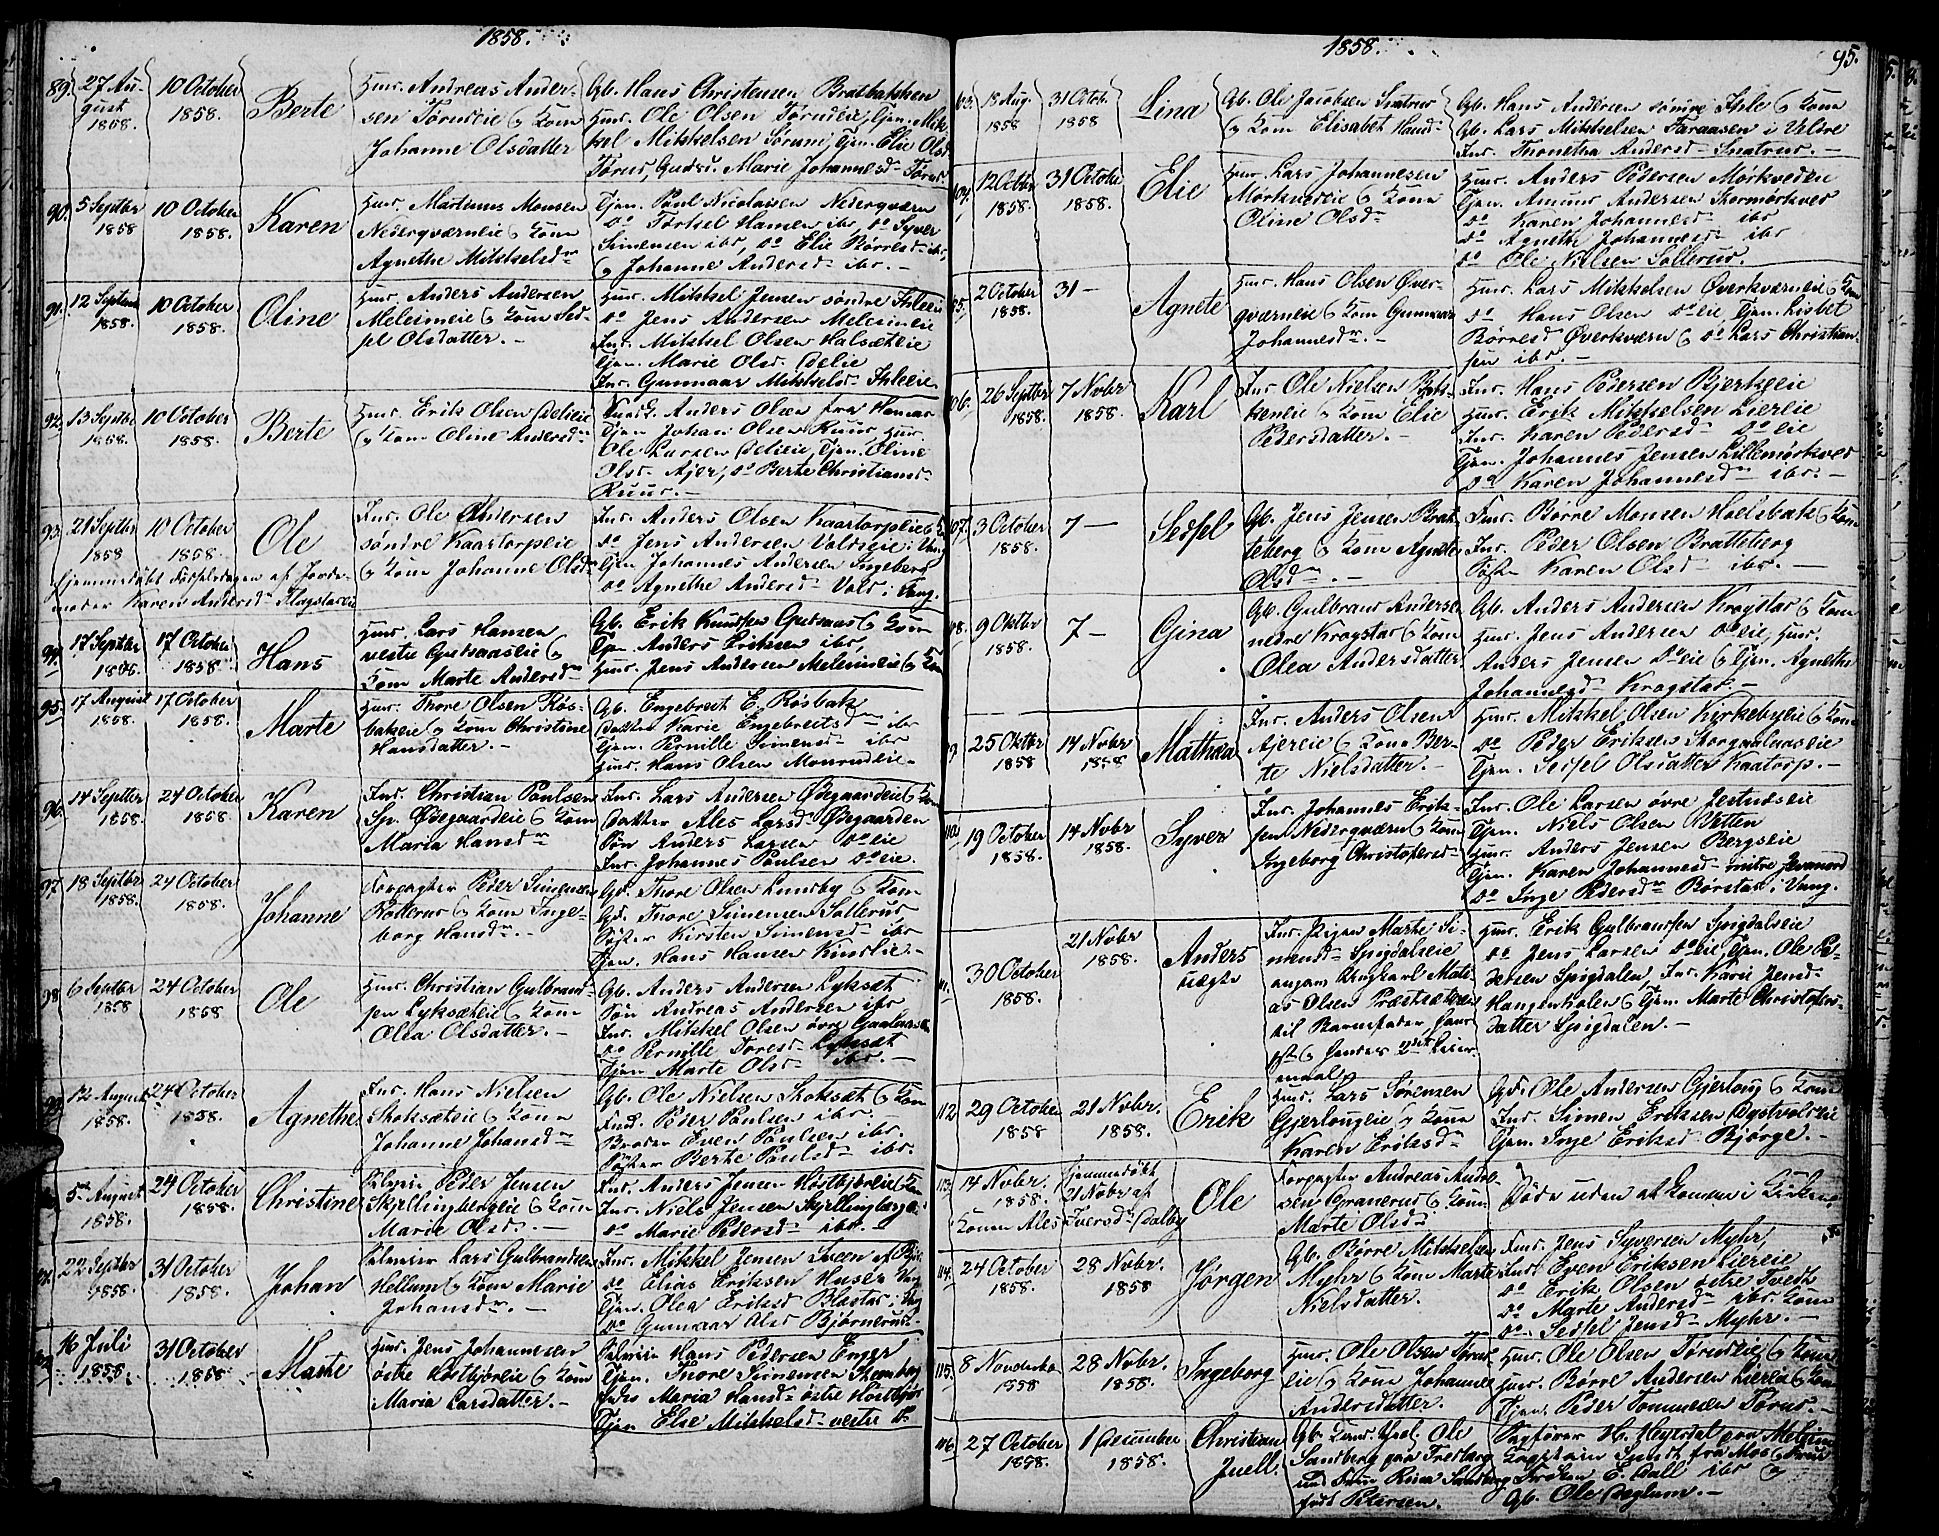 1858.
89. 27 Au-
gust
1858.
10 October
1858.
Berte
Huus. Andreas Ander-
sen Torudeie & Kone
Johanne Olsdatter
Gb. Hans Christensen Bratbakken
Huus. Ole Olsen Torudeie, Tjen. Mik-
kel Mikkelsen Sorum, Tjen. Elie Olsd.
Torud, Marie Johannesd. Torud
90. 5 Septbr
1858
10 October
1858.
Karen
Huus. Martinus Monsen
Nederqværneie & Kone
Agnethe Mikkelsdr
Tjen. Poul Nicolaisen Nederqværn
do Torkel Hansen ibd, do Syver
Simensen ibd, do Elie Børresd ibd,
& Johanne Andersd ibd. -
91. 12 Septemb
1858.
10 October
1858.
Oline
Huus. Anders Andersen
Melumeie & Kone Sed-
sel Olsdatter. -
Huus. Mikkel Jensen søndre Ihleeie
do Jens Andersen Melumeie
Ind. Mikkel Olsen Halsætheie
Tjen. Marie Olsd. Delie
Ind. Gunnaar Mikkelsd. Ihleeie
92. 13 Septbr
1858.
10 October
1858.
Berte
Huus. Erik Olsen Delieie
& Kone Oline Andersdr
Anders Olsen fra Hamar
Tjen. Johan Olsen Ruud, Huus.
Ole Larsen Delieie, Tjen. Oline
Olsd. Ajer, do Berte Christiansd.
Ruud. -
93. 21 Septbr
1858
10 October
1858.
Ole
Hjemmedøbt Fødselsdagen af Jorde-
moder Karen Andersdr Flagstadeie
Ind. Ole Andersen
søndre Kaatorpeie
& Kone Johanne Olsdr
Ind. Anders Olsen Kaatorpeie & K.
do Jens Andersen Voldseie i Vang
Tjen. Johannes Andersen Ingeberg
do Agnethe Andersd Vold i Vang.
94. 17 Septbr
17 October
1858.
Hans
Huus. Lars Hansen
vestre Gudsaaseie &
Kone Marte Andersdr
Gb. Erik Knudsen Gudsaas & Kone
Anders Eriksen ibd,
Huus. Jens Andersen Melumeie & Kone
95. 17 August
1858.
17 October
1858.
Marte
Huus. Thore Olsen Røs-
bakeie & Kone Christine
Hansdatter. -
Gb. Engebret E. Røsbak
Datter Karie Engebretsd ibd
Tjen. Pernille Simensd ibd
Huus. Hans Olsen Monrudeie -
96. 14 Septbr
1858.
24 October
1858.
Karen
Ind. Christian Poulsen
Sp. Ødegaardeie & Kone
Maria Hansdr
Ind. Lars Andersen Ødegaardeie & Kone
Datter Ales Larsd Ødegaarden
Søn Anders Larsen do eie
Ind. Johannes Poulsen do eie.
97. 18 Septbr
1858.
24 October
1858.
Johanne
Forpagter Peder Simensen
Rollerud & Kone Inge-
borg Hansdr. -
Gb. Thore Olsen Lundby & Kone
Gb. Thore Simensen Sollerud
Søster Kirsten Simensd ibd
Tjen. Hans Hansen Kindlie. -
98. 6 Septbr
1858
24 October
1858
Ole
Huus. Christian Gulbrand-
sen Lyksætheie & Kone
Olea Olsdatter. -
Gb. Anders Andersen Lyksæt
Søn Andreas Andersen ibd
Ind. Mikkel Olsen øvre
do Pernille Toresd Lyksæt
Tjen Marte Olsd ibd. -
99. 12 August
1858.
24 October
1858
Agnethe
Ind. Hans Nielsen
Skoksæteie & Kone
Johanne Johansdr
Gb. Ole Nielsen Skoksæt & Kone
Ind. Peder Poulsen ibd.
Broder Even Poulsen ibd
Søster Berte Poulsd ibd.
5 August
1858.
24 October
1858.
Christine
Peder Jensen
Skjellingbergeie & Kone
Marie Olsd. -
Ind. Anders Jensen Hostbjøreie & Kone
Ind. Niels Jensen Skjellingberg
do Marie Pedersd ibd. -
22 Septbr
1858.
31 October
1858.
Johan
Lars Gulbrandsen
Hellum & Kone Marie
Johansdr. -
Ind. Mikkel Jensen
do Elias Eriksen
Tjen. Olea Eriksd Blostad i Vang
do Gunnaar Olsd Bjørnerud -
16 Juli
1858.
31 October
1858
Marte
Huus. Jens Johannesen
østre Hostbjøreie & Kone
Maria Larsdatter. -
Hans Pedersen Enger
Tjen. Thore Simensen
Maria Hansd østre Hostbjør
Tjen Else Mikkelsd vestre do
1858.
95.
103. 18 Aug.
1858
31 Octob.
1858
Lina
Gb. Ole Jacobsen Snatrud
& Kone Elisabet Hansd.
Gb. Hans Andersen søndre Ihle & Kone
Gb. Lars Mikkelsen Faraasen i Veldre
Ind. Thonetha Andersd. Snatrud. -
104. 12 Octbr
1858.
31 Octobr
1858.
Elie
Huus. Lars Johannesen
Mørkvedeie & Kone
Oline Olsdr
Huus. Anders Pedersen Mørkveden
Tjen. Amund Andersen Stormørkved
do Karen Johannesd ibd
do Agnethe Johannesd ibd
do Ole Nielsen Sollerud.
105. 2 October
1858.
31 -
Agnete
Huus. Hans Olsen Øver-
qværneie & Kone Gunnaar
Johannesdr. -
Huus. Lars Mikkelsen Øverkværneie & Kone
do Hans Olsen do eie, Tjen. Lisbet
Børresd Øverkværn & do Lars Christian-
sen ibd. -
106. 26 Septbr
1858.
7 Novbr
1858.
Karl
Ind. Ole Nielsen
& Kone Elie
Pedersdatter. -
Ind. Hans Pedersen Bjerkeeie
Huus. Erik Mikkelsen Lierlie
Ind. Karen Pedersd do eie
Tjen. Johannes Jensen Lillemørkved
do Karen Johannesdr ibd. -
107. 3 October
1858.
7 -
Sedsel
Gb. Jens Jensen Brat-
teberg & Kone Agnete
Olsdr. -
Ind. Børre Monsen Holsbak & Kone
Ind. Peder Olsen Bratteberg
Søster Karen Olsd ibd. -
108. 9 Oktbr
1858.
7 -
Gina
Gb. Gulbrand Andersen
nedre Kragstad & Kone
Olea Andersdatter
Gb. Anders Andersen Kragstad & Kone
Huus. Jens Andersen do eie, Huus.
Anders Jensen do eie & Tjen. Agnethe
Johannesd Kragstad. -
9. 25 Oktbr
1858
14 Novbr
1858
Mathea
Ind. Anders Olsen
Ajereie & Kone Ber-
te Nielsdatter. -
Huus. Mikkel Olsen Kirkebyeie & Kone
do Peder Eriksen
Tjen. Sedsel Olsdatter Kaatorp. -
110. 19 October
1858.
14 Novbr
1858.
Syver
Ind. Johannes Erik-
sen Nederqværn & Kone
Ingeborg Christophersd
Ind. Ole Larsen øvre Jestudeie
Tjen. Niels Olsen Betten
Huus. Anders Jensen Bergseie
Tjen. Karen Johannesd
do Inge Pedersdr Børstad i Vang.
111. 30 October
1858.
21 Novbr
1858.
Anders
uægte
Ind. Pigen Marthe Si-
mensd Spigdalseie
angav Ungkarl Mathi-
as Olsen Præstsæteren
til Barnefader, hans
& hendes 2det Leier-
maal.
Huus. Erik Gulbrandsen Spigdalseie
do Jens Larsen do eie, Tjen. Ole Pe-
dersen Spigdalen, Ind. Karie Jensd
Haugenhalen & Tjen. Marte Christophers-
datter Spigdalen. -
112. 29 October
1858
21 Novbr.
1858.
Erik
Huus. Lars Sørensen
Gjerlougeie & Kone
Karen Eriksdr
Gb. Ole Andersen Gjerloug & Kone
Ind. Simen Eriksen
Tjen. Inge Eriksd Bjørge. -
113. 14 Novbr.
1858.
hjemmedøbt
21 Novbr af
Konen Ales Iversdr Dalby
Ole
Forpagter Andreas Andre-
sen Granerud & Kone
Marte Olsd
Døde uden at komme i Kirken
114. 24 October
1858.
28 Novbr.
1858
Jørgen
Gb. Børre Mikkelsen
Myhr & Kone Marte
Nielsdatter.
Ind. Jens Syversen Myhr,
Ind. Even Eriksen Liereie
do Erik Olsen østre
do Marte Andersdr ibd. Kone
do Sedsel Jensd Myhr. -
115. 8 November
1858
28 Novbr.
1858.
Ingeborg
Huus. Ole Olsen Torud-
eie & Kone Johanne
Andersdatter.
Huus. Ole Olsen Torudeie & Kone
Huus. Børre Andersen Liereie & Kone
Tjen. Peder Tommesen Torud. -
116. 27 October
1858.
1 December
1858.
Christian
Juell.
Gb. Ole
Sandberg paa Tredberg
Rina Sandberg
født Petersen.
Sagfører H. Meysdal
Kaptein Sundt fra
Frøken E. Dall ibd &
Gb. Ole Dæglum. -